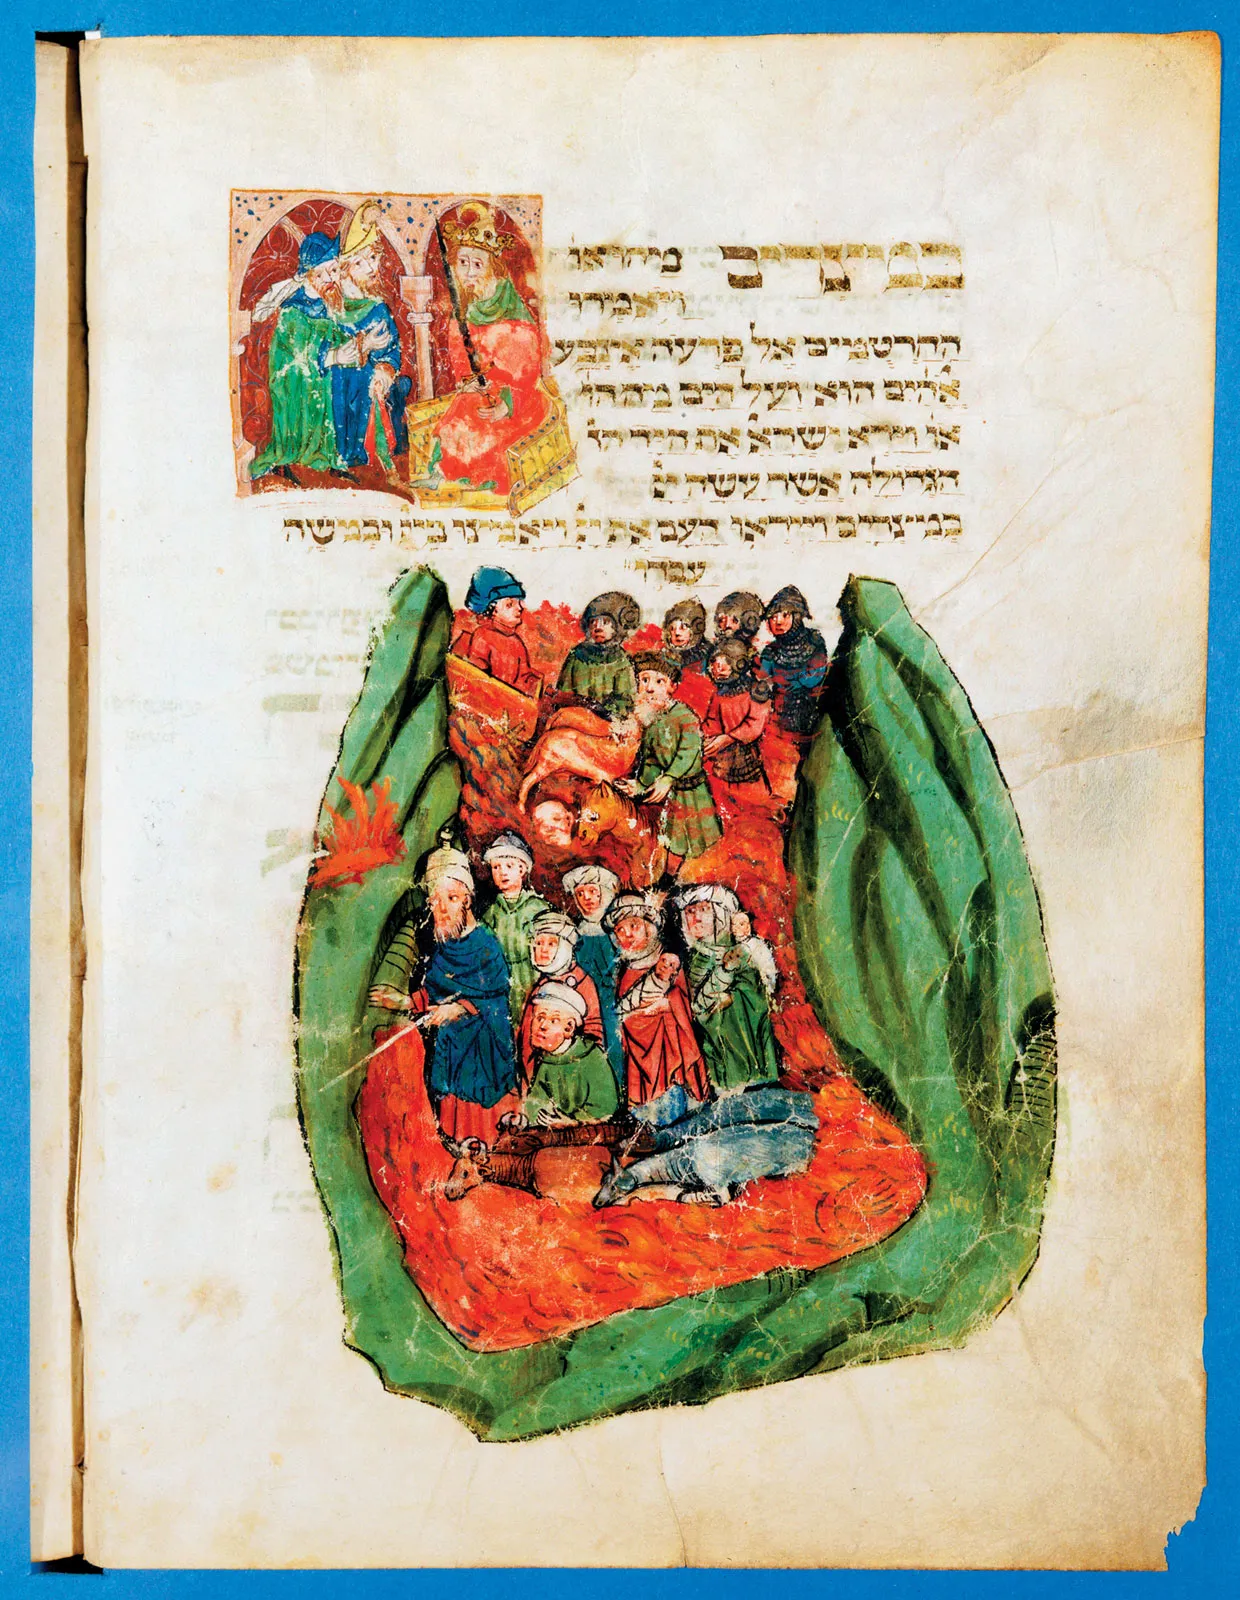 במצרים מהו או
ויאמרו
החרטמים אל פרעה אצבע
אלהים הוא ועל הים מהו
או וירא ישראל את היד
הגדולה אשר עשה יי
במצרים וייראו העם את יי ויאמינו ביי ובמשה
עבדו